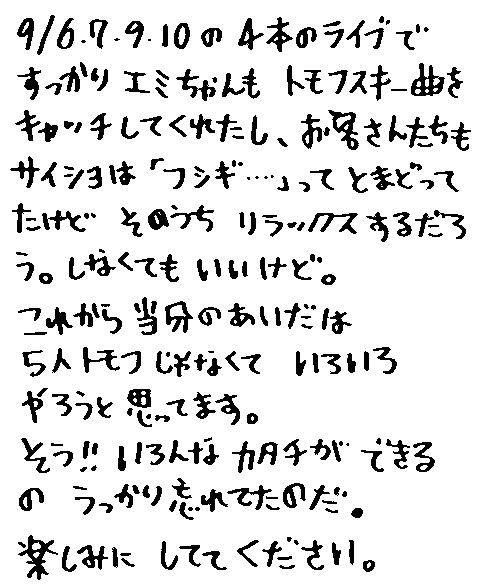 9/6.7.9.10の4本のライブで
すっかり エミちゃんも トモフスキー曲を
キャッチしてくれたし、お客さんたちも
サイショは「フシギ…‥」って とまどって
たけど そのうち リラックスするだろ
う。しなくても いいけど。
これから 当分のあいだは
5人トモフじゃなくて いろいろ
やろうと思ってます。
そう!! いろんな カタチが できる
の うっかり忘れてたのだ。
楽しみに してて ください。